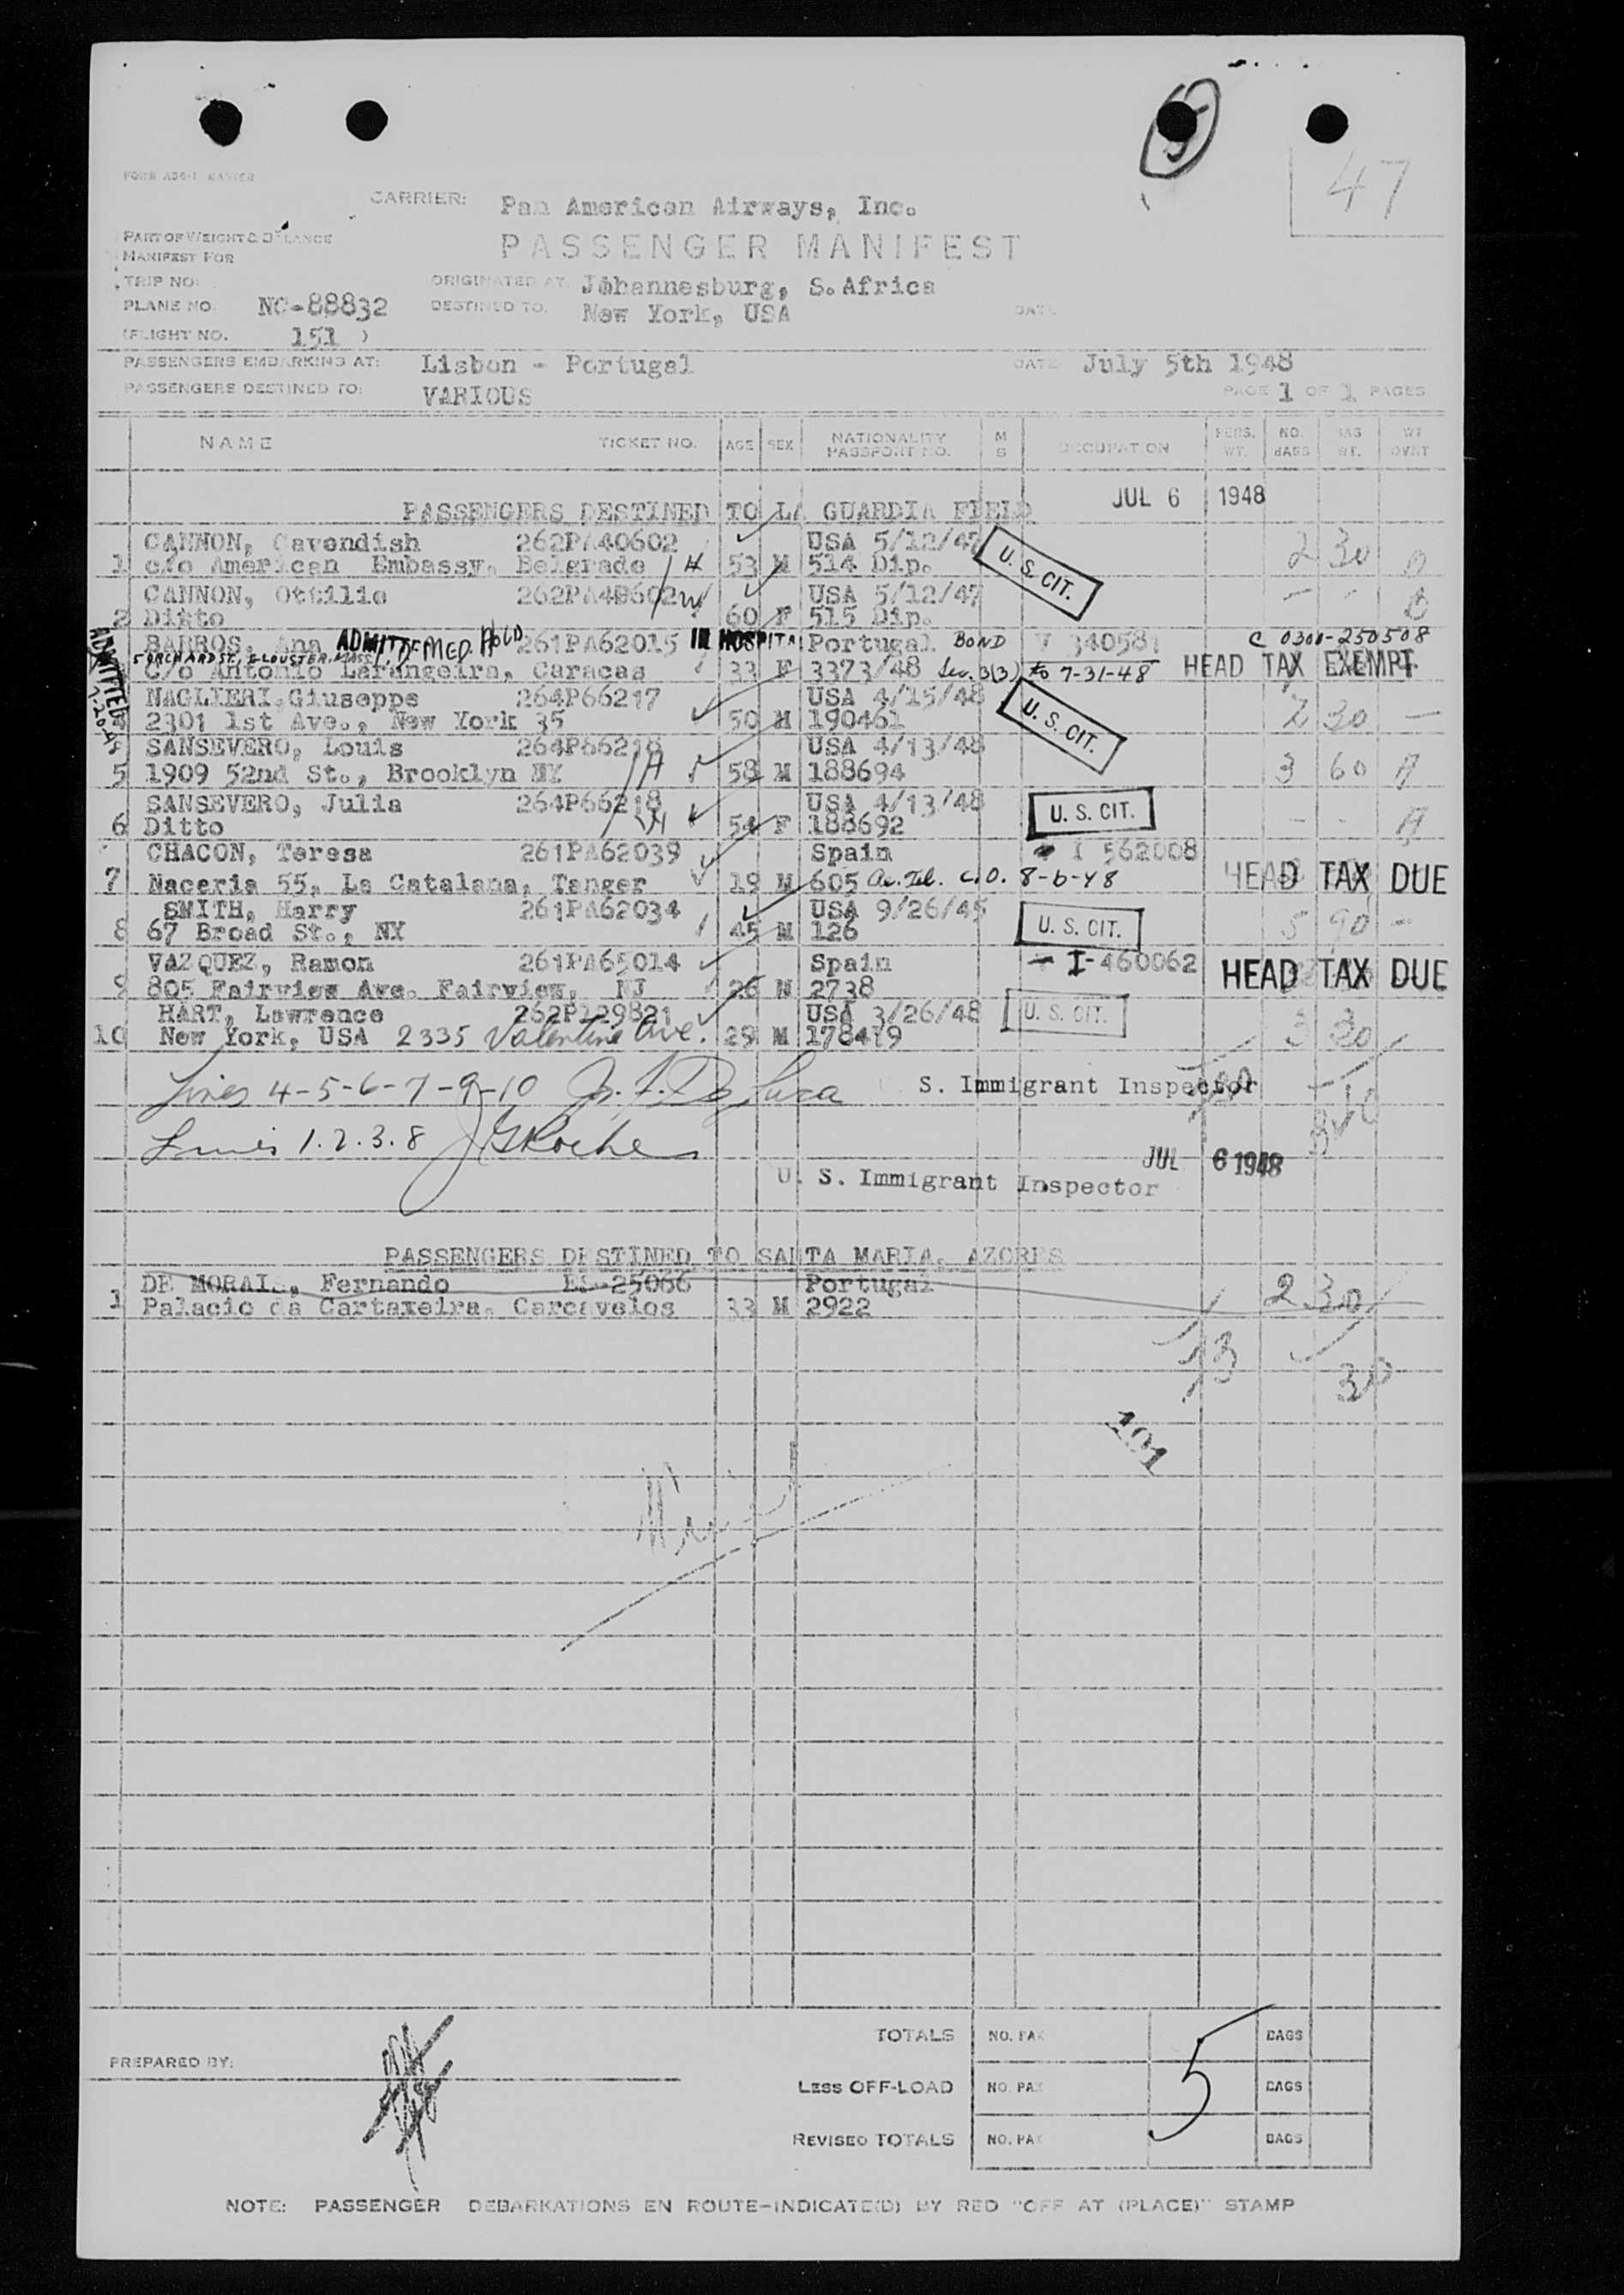 5
47
FORM A34-1 MASTER
CARRIER: Pan American Airways, Inc.
PART OF WEIGHT & BALANCE
MANIFEST FOR
PASSENGER MANIFEST
TRIP NO. ORIGINATED AT: Johannesburg, S. Africa
PLANE NO. NC-88832 DESTINED TO: New York, USA DATE
(FLIGHT NO. 151 )
PASSENGERS EMBARKING AT: Lisbon - Portugal DATE July 5th 1948
PASSENGERS DESTINED TO: VARIOUS PAGE 1 OF 1 PAGES
NAME TICKET NO. AGE SEX NATIONALITY PASSPORT NO. M S OCCUPATION PERS. WT. NO. BAGS BAG WT. WT OVRT
JUL 6 1948
PASSENGERS DESTINED TO LA GUARDIA FIELD
CANNON, Cavendish 262PA40602 USA 5/12/47
1 c/o American Embassy, Belgrade 53 M 514 Dip. U. S. CIT. 2 30
CANNON, Ottilie 262PA40602 USA 5/12/47
2 Ditto 60 F 515 Dip.
BARROS, Ana ADMITTED MED. HOLD 261PA62015 IN HOSPITAL Portugal BOND V 340581 C 0300-250508
5 ORCHARD ST, GLOUSTER, MASS.
c/o Antonio Larangeira, Caracas 33 F 3373/48 Sec. 3(3) to 7-31-48 HEAD TAX EXEMPT
ADMITTED
NAGLIERI, Giuseppe 264P66217 USA 4/15/48
2301 1st Ave., New York 35 50 M 190461 U. S. CIT. 2 30 —
SANSEVERO, Louis 264P66218 USA 4/13/48
5 1909 52nd St., Brooklyn NY 58 M 188694 3 60 A
SANSEVERO, Julia 264P66218 USA 4/13/48
6 Ditto 54 F 188692 U. S. CIT. - - A
CHACON, Teresa 261PA62039 Spain I 562008
7 Naceria 55, La Catalana, Tanger 19 M 605 8-6-48 HEAD TAX DUE
SMITH, Harry 261PA62034 USA 9/26/45
8 67 Broad St., NX 45 M 126 U. S. CIT. 5 90 -
VAZQUEZ, Ramon 261PA65014 Spain I-460062
9 805 Fairview Ave. Fairview, NJ 26 M 2738 HEAD TAX DUE
HART, Lawrence 262P129821 USA 3/26/48 U. S. CIT.
10 New York, USA 2335 Valentine Ave. 29 M 178419 3 30
Lines 4-5-6-7-9-10 S. Immigrant Inspector
Lines 1.2.3.8 JGRoche
JUL 6 1948
U. S. Immigrant Inspector
PASSENGERS DESTINED TO SANTA MARIA, AZORES
DE MORAIS, Fernando LS-25066 Portugal
1 Palacio da Cartaxeira, Carcavelos 33 M 2922 2 30
73 30
101
TOTALS NO. PAX BAGS
PREPARED BY:
LESS OFF-LOAD NO. PAX 5 BAGS
REVISED TOTALS NO. PAX BAGS
NOTE: PASSENGER DEBARKATIONS EN ROUTE-INDICATE(D) BY RED "OFF AT (PLACE)" STAMP